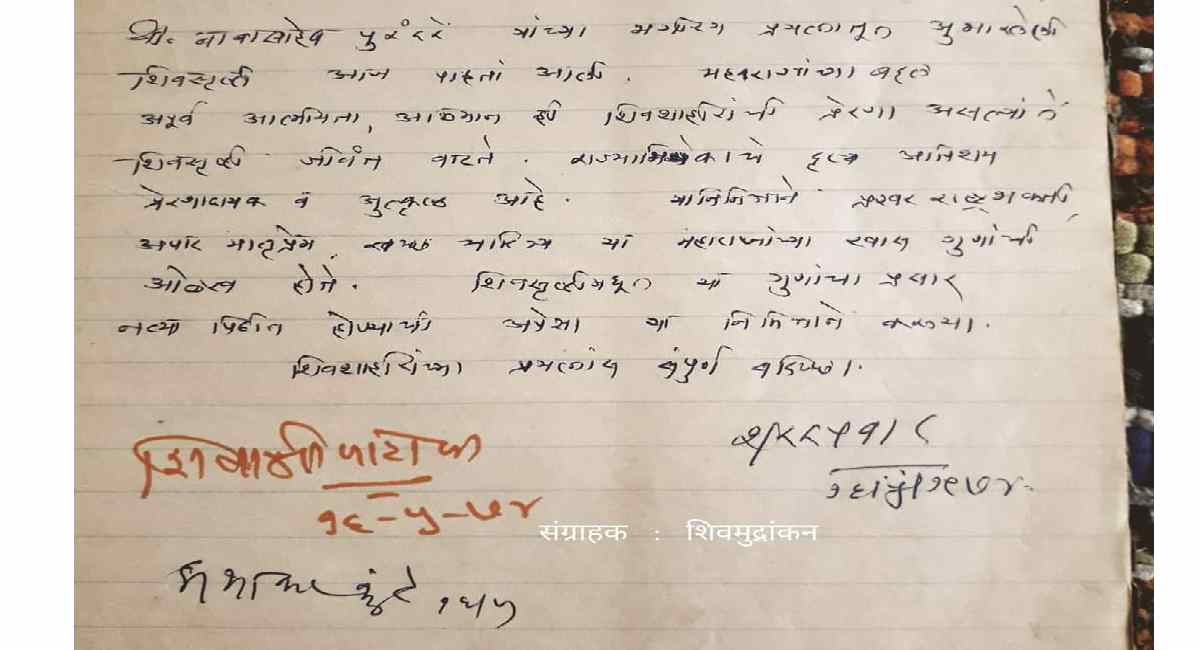 श्री. बाबासाहेब पुरंदरे यांच्या भगीरथ प्रयत्नातून अुभारलेली
शिवसृष्टी आज पाहता आली. महाराजांच्या बद्दल
अपूर्व आत्मीयता, अभिमान ही शिवशाहीरांची प्रेरणा असल्याने
शिवसृष्टी जीवंत वाटते. राज्याभिषेकाचे दृश्य अतिशय
प्रेरणादायक व अुत्कृष्ठ आहे. यानिमित्ताने प्रखर राष्ट्रभक्ती,
अपार मातृप्रेम, स्वच्छ चारित्र्य या महाराजांच्या खास गुणांची
ओळख होते. शिवसृष्टीमधून या गुणांचा प्रसार
नव्या पिढीत होण्याची अपेक्षा या निमित्ताने करूया.
शिवशाहीरांच्या प्रयत्नांस संपुर्ण यश
शिवाजी
१६-५-७४
शरद पवार
१६/५/१९७४.
प्रभाकर कुंटे १६/५
संग्राहक : शिवमुद्रांकन